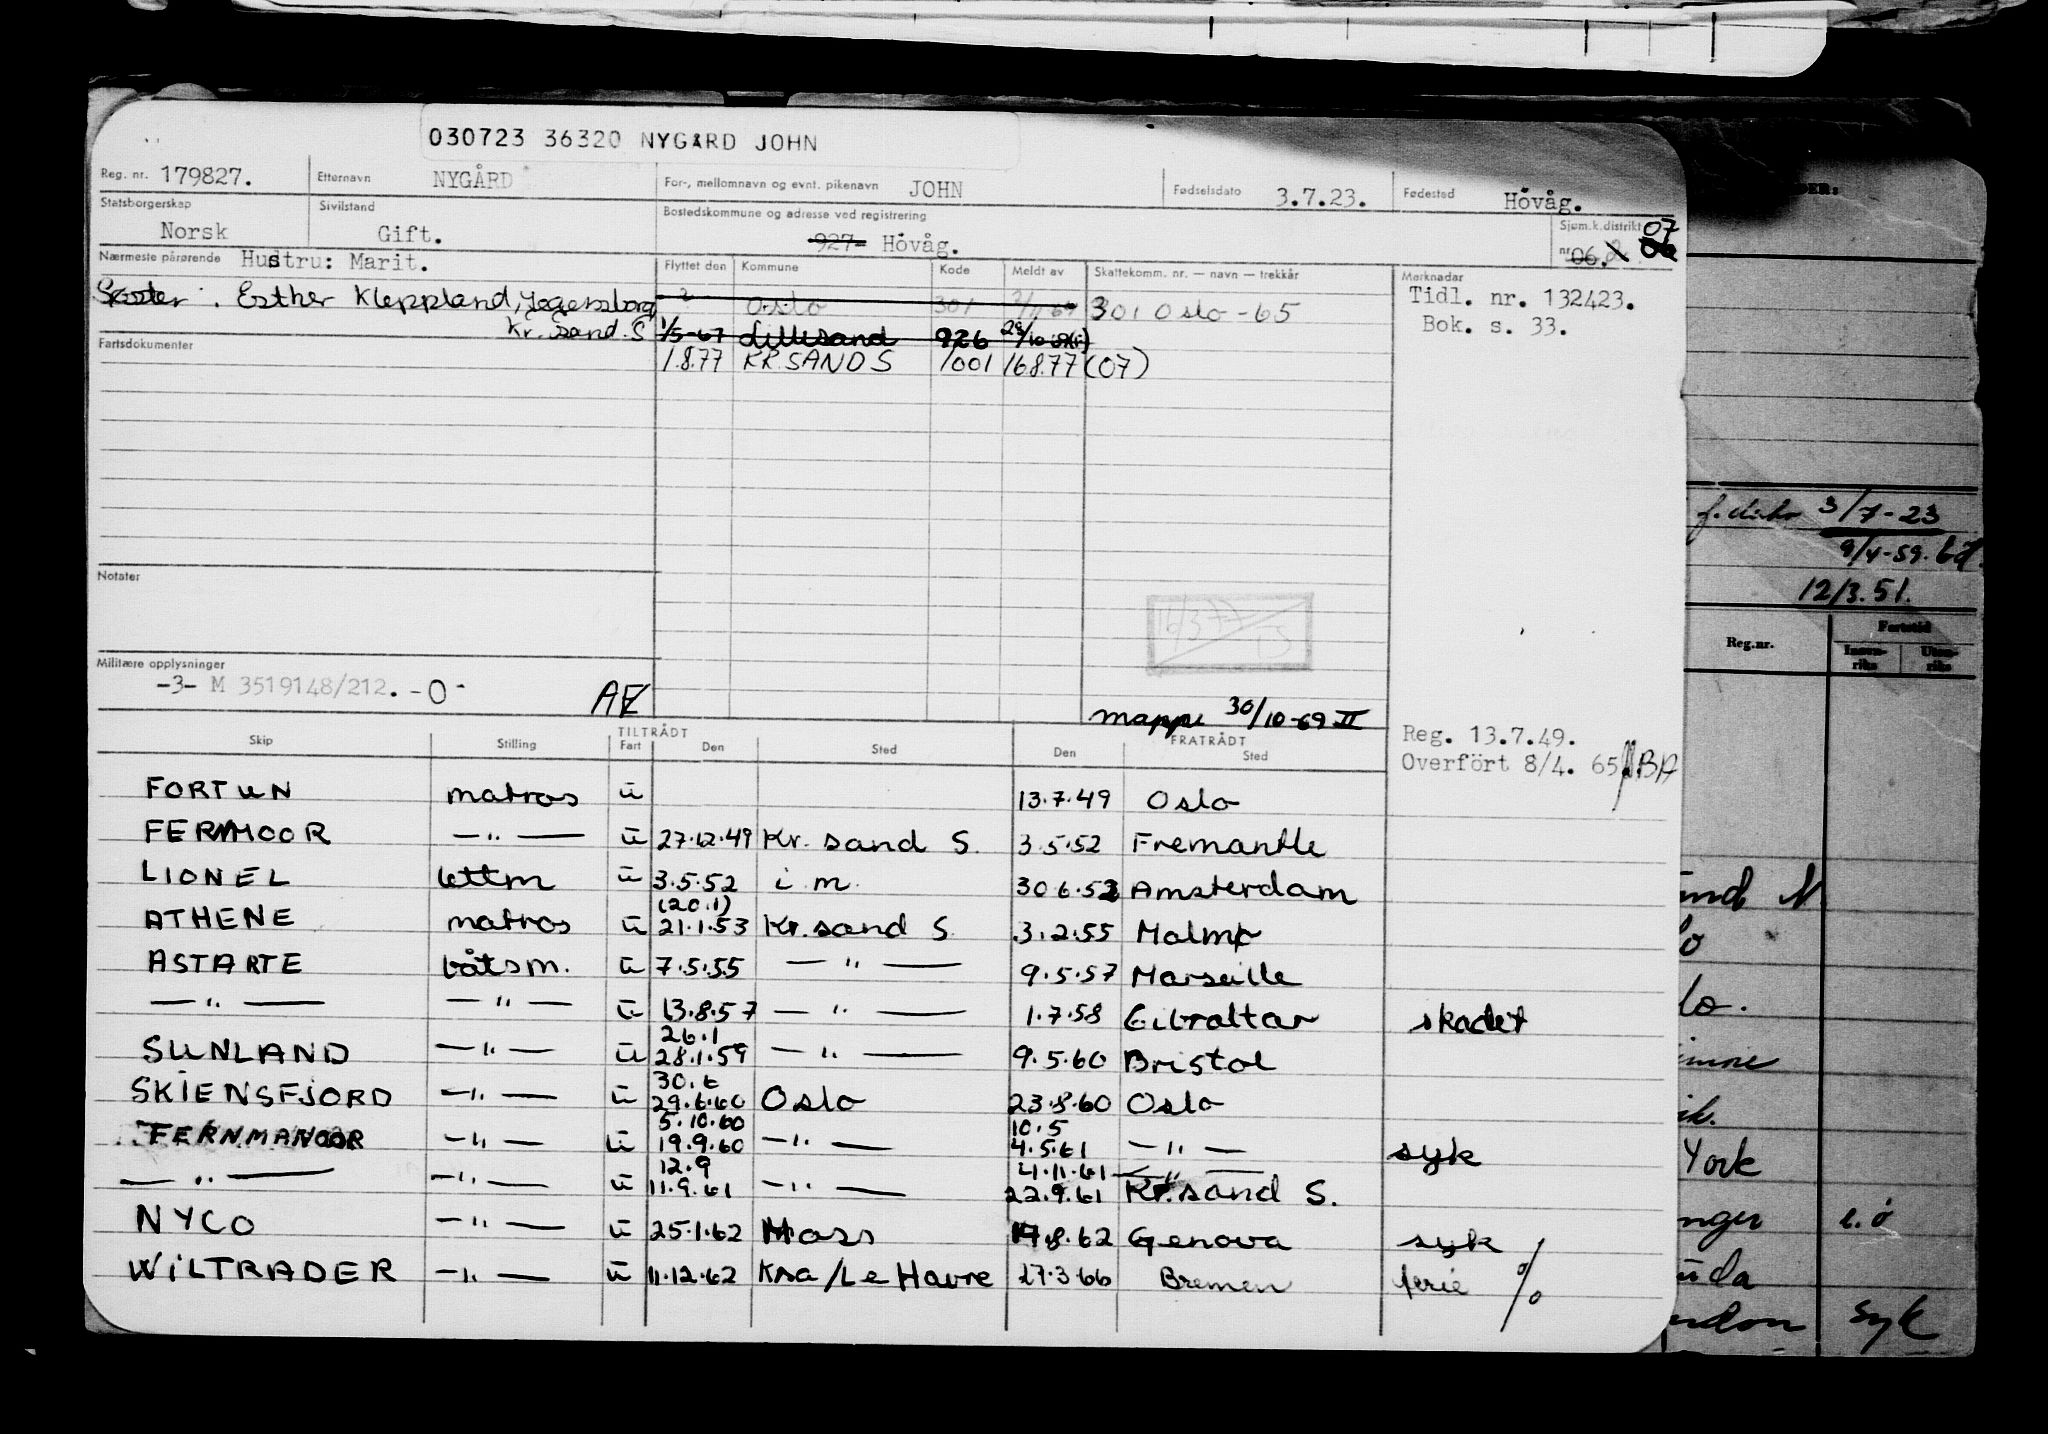 030723 36320 NYGARD JOHN
Reg. nr. 179827. Etternavn NYGÅRD For-, mellomnavn og evnt. pikenavn JOHN Fødselsdato 3.7.23. Fødested Hövåg.
Statsborgerskap Norsk Sivilstand Gift. Bostedskommune og adresse ved registrering 927- Hövåg. Sjøm.k.distrikt nr. 06. 07 06
Nærmeste pårørende Hustru: Marit.
Flyttet den Kommune Kode Meldt av Skattekomm. nr. — navn — trekkår Merknader
Søster. Esther Kleppland, Jegersborg
Kr. Sand. S
Oslo 301 301 Oslo - 65
1/5-67 Lillesand 926
1.8.77 KR. SAND S 1001 16.8.77 (07)
Tidl. nr. 132423.
Bok. s. 33.
Fartsdokumenter
Notater
Militære opplysninger
-3- M 3519148/212. -0-
AE
mappe 30/10-69 II
Reg. 13.7.49.
Overfört 8/4. 65 BA
TILTRÅDT FRATRÅDT
Skip Stilling Fart Den Sted Den Sted
FORTUN matros u 13.7.49 Oslo
FERNMOOR — " — u 27.12.49 Kr. sand S. 3.5.52 Fremantle
LIONEL lettm u 3.5.52 i.m. 30.6.52 Amsterdam
(20.1)
ATHENE matros u 21.1.53 Kr. sand S. 3.2.55 Malmø
ASTARTE båtsm. u 7.5.55 — " — 9.5.57 Marseille
— " — — " — u 13.8.57 — " — 1.7.58 Gibraltar skadet
26.1
SUNLAND — " — u 28.1.59 — " — 9.5.60 Bristol
30.6
SKIENSFJORD — " — u 29.6.60 Oslo 23.8.60 Oslo
5.10.60 10.5
FERNMANOR — " — u 19.9.60 — " — 4.5.61 — " — syk
12.9 4.11.61 — " —
— " — — " — u 11.9.61 — " — 22.9.61 Kr. sand S.
NYCO — " — u 25.1.62 Moss 17.8.62 Genova syk
WILTRADER — " — u 11.12.62 Kra/Le Havre 27.3.66 Bremen ferie %
3/7-23
9/4-59.
12/3.51.
Reg.nr. Fartstid
Innen-riks Uten-riks
York
syk